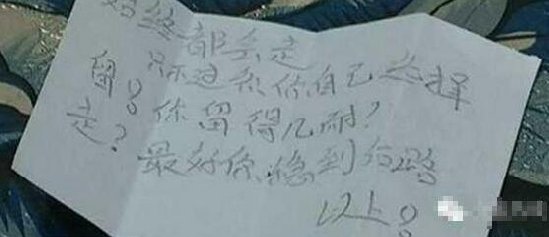 始终都会走
只不过系你自己选择
留？你留得几耐？
走？
最好你稳到
以上。